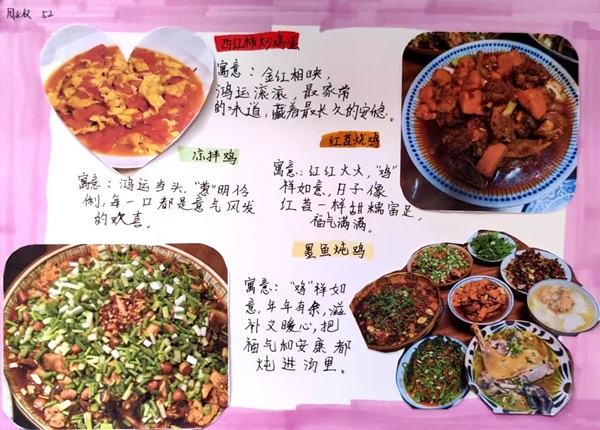 52
西红柿炒鸡蛋
寓意：金红相映，
鸿运滚滚，最家常
的味道，藏着最长久的安稳。
凉拌鸡
寓意：鸿运当头，"葱"明伶
俐，每一口都是意气风发
的欢喜。
红苕烧鸡
寓意：红红火火，"鸡"
样如意，日子像
红苕一样甜糯富足，
福气满满。
墨鱼炖鸡
寓意："鸡"样如
意，年年有余，滋
补又暖心，把
福气和安康都
炖进汤里。